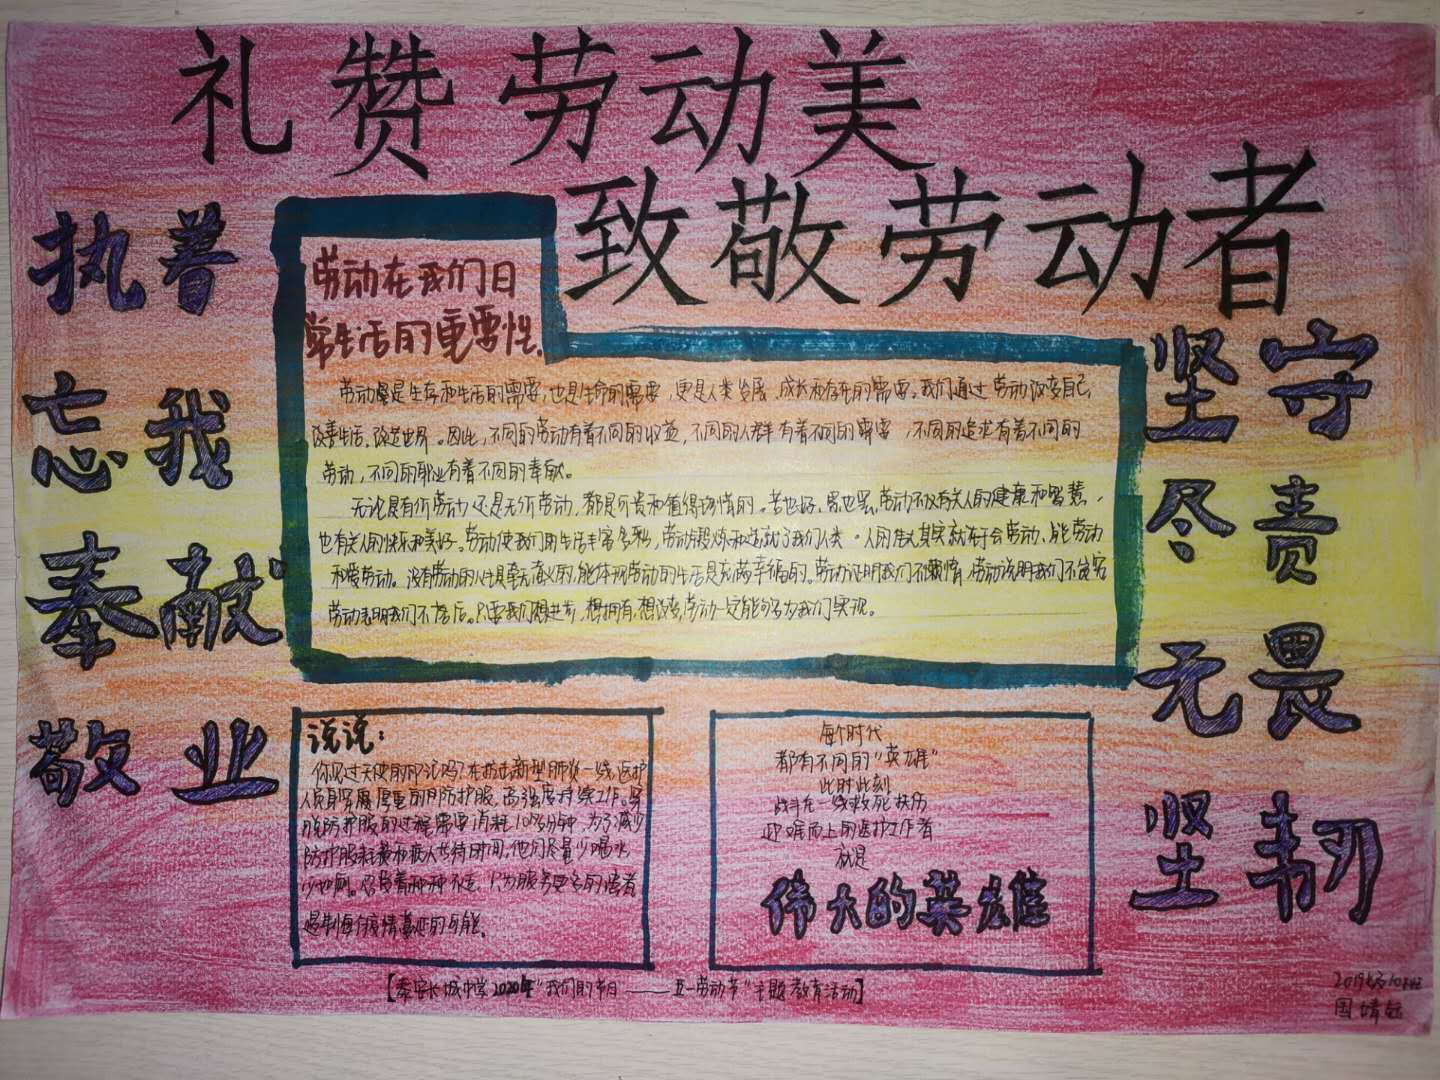 礼赞劳动美
致敬劳动者
执着
忘我
奉献
敬业
劳动在我们日
常生活的重要性.
劳动是生存和生活的需要,也是生命的需要,更是人类发展、成长和存在的需要。我们通过劳动改变自己,
改善生活,改造世界。因此,不同的劳动有着不同的收益,不同的人群有着不同的需要,不同的追求有着不同的
劳动,不同的职业有着不同的奉献。
无论是有价劳动还是无价劳动,都是可贵和值得珍惜的。苦也好、累也罢,劳动不仅有关人的健康和智慧,
也有关人的快乐和美好。劳动使我们的生活丰富多彩,劳动锻炼和造就了我们人类。人的伟大其实就在于会劳动、能劳动
和爱劳动。没有劳动的人生是毫无意义的,能体现劳动的生活是充满幸福的。劳动证明我们不懒惰,劳动说明我们不贫穷
劳动表明我们不落后。只要我们想进步,想拥有,想改变,劳动一定能够为我们实现。
坚守
尽责
无畏
坚韧
说说:
你见过天使的印记吗?在抗击新型肺炎一线,医护
人员身穿厚重的防护服,高强度持续工作。穿
脱防护服的过程需要消耗10多分钟,为了减少
防护服耗费和病人等待时间,他们尽量少喝水
少如厕。忍受着种种不适,只为服务更多的患者
遏制每个疫情蔓延的可能.
每个时代
都有不同的“英雄”
此时此刻
战斗在一线救死扶伤
迎难而上的医护工作者
就是
伟大的英雄
【泰安长城中学2020年“我们的节日——五一劳动节”主题教育活动】